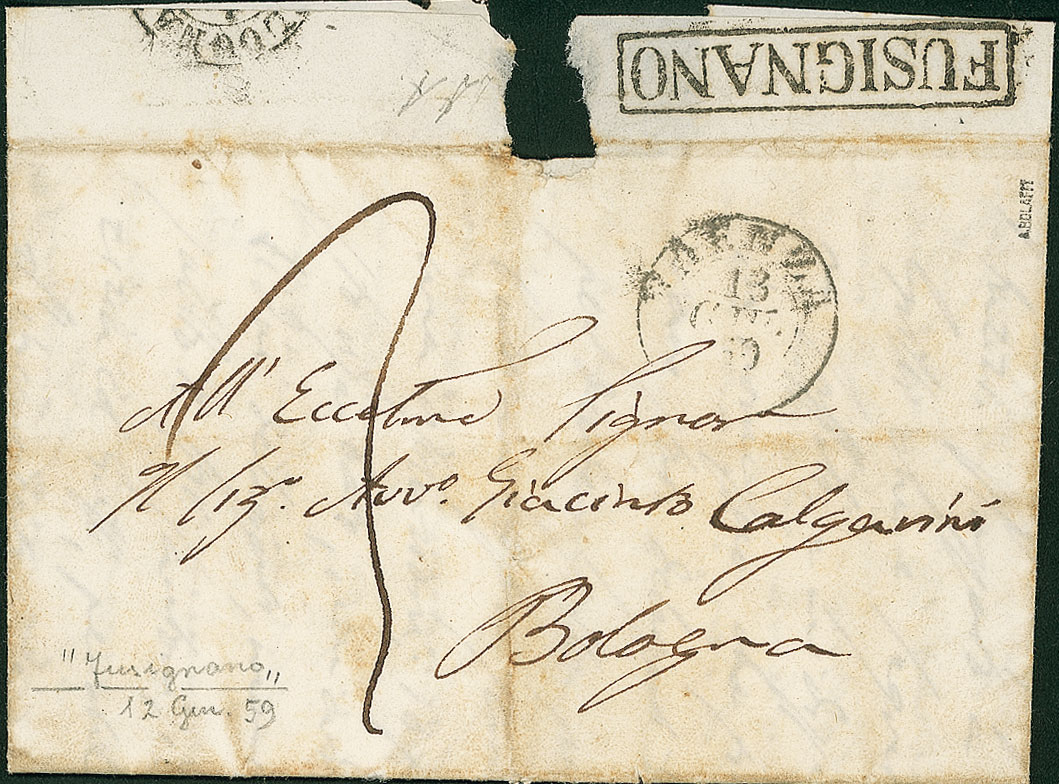 FUSIGNANO
A. BOLAFFI
13
GEN.
All' Eccelmo Signore
Il Sig. Avvo. Giacinto Calgarini
Bologna
"Fusignano"
12 Gen. 59